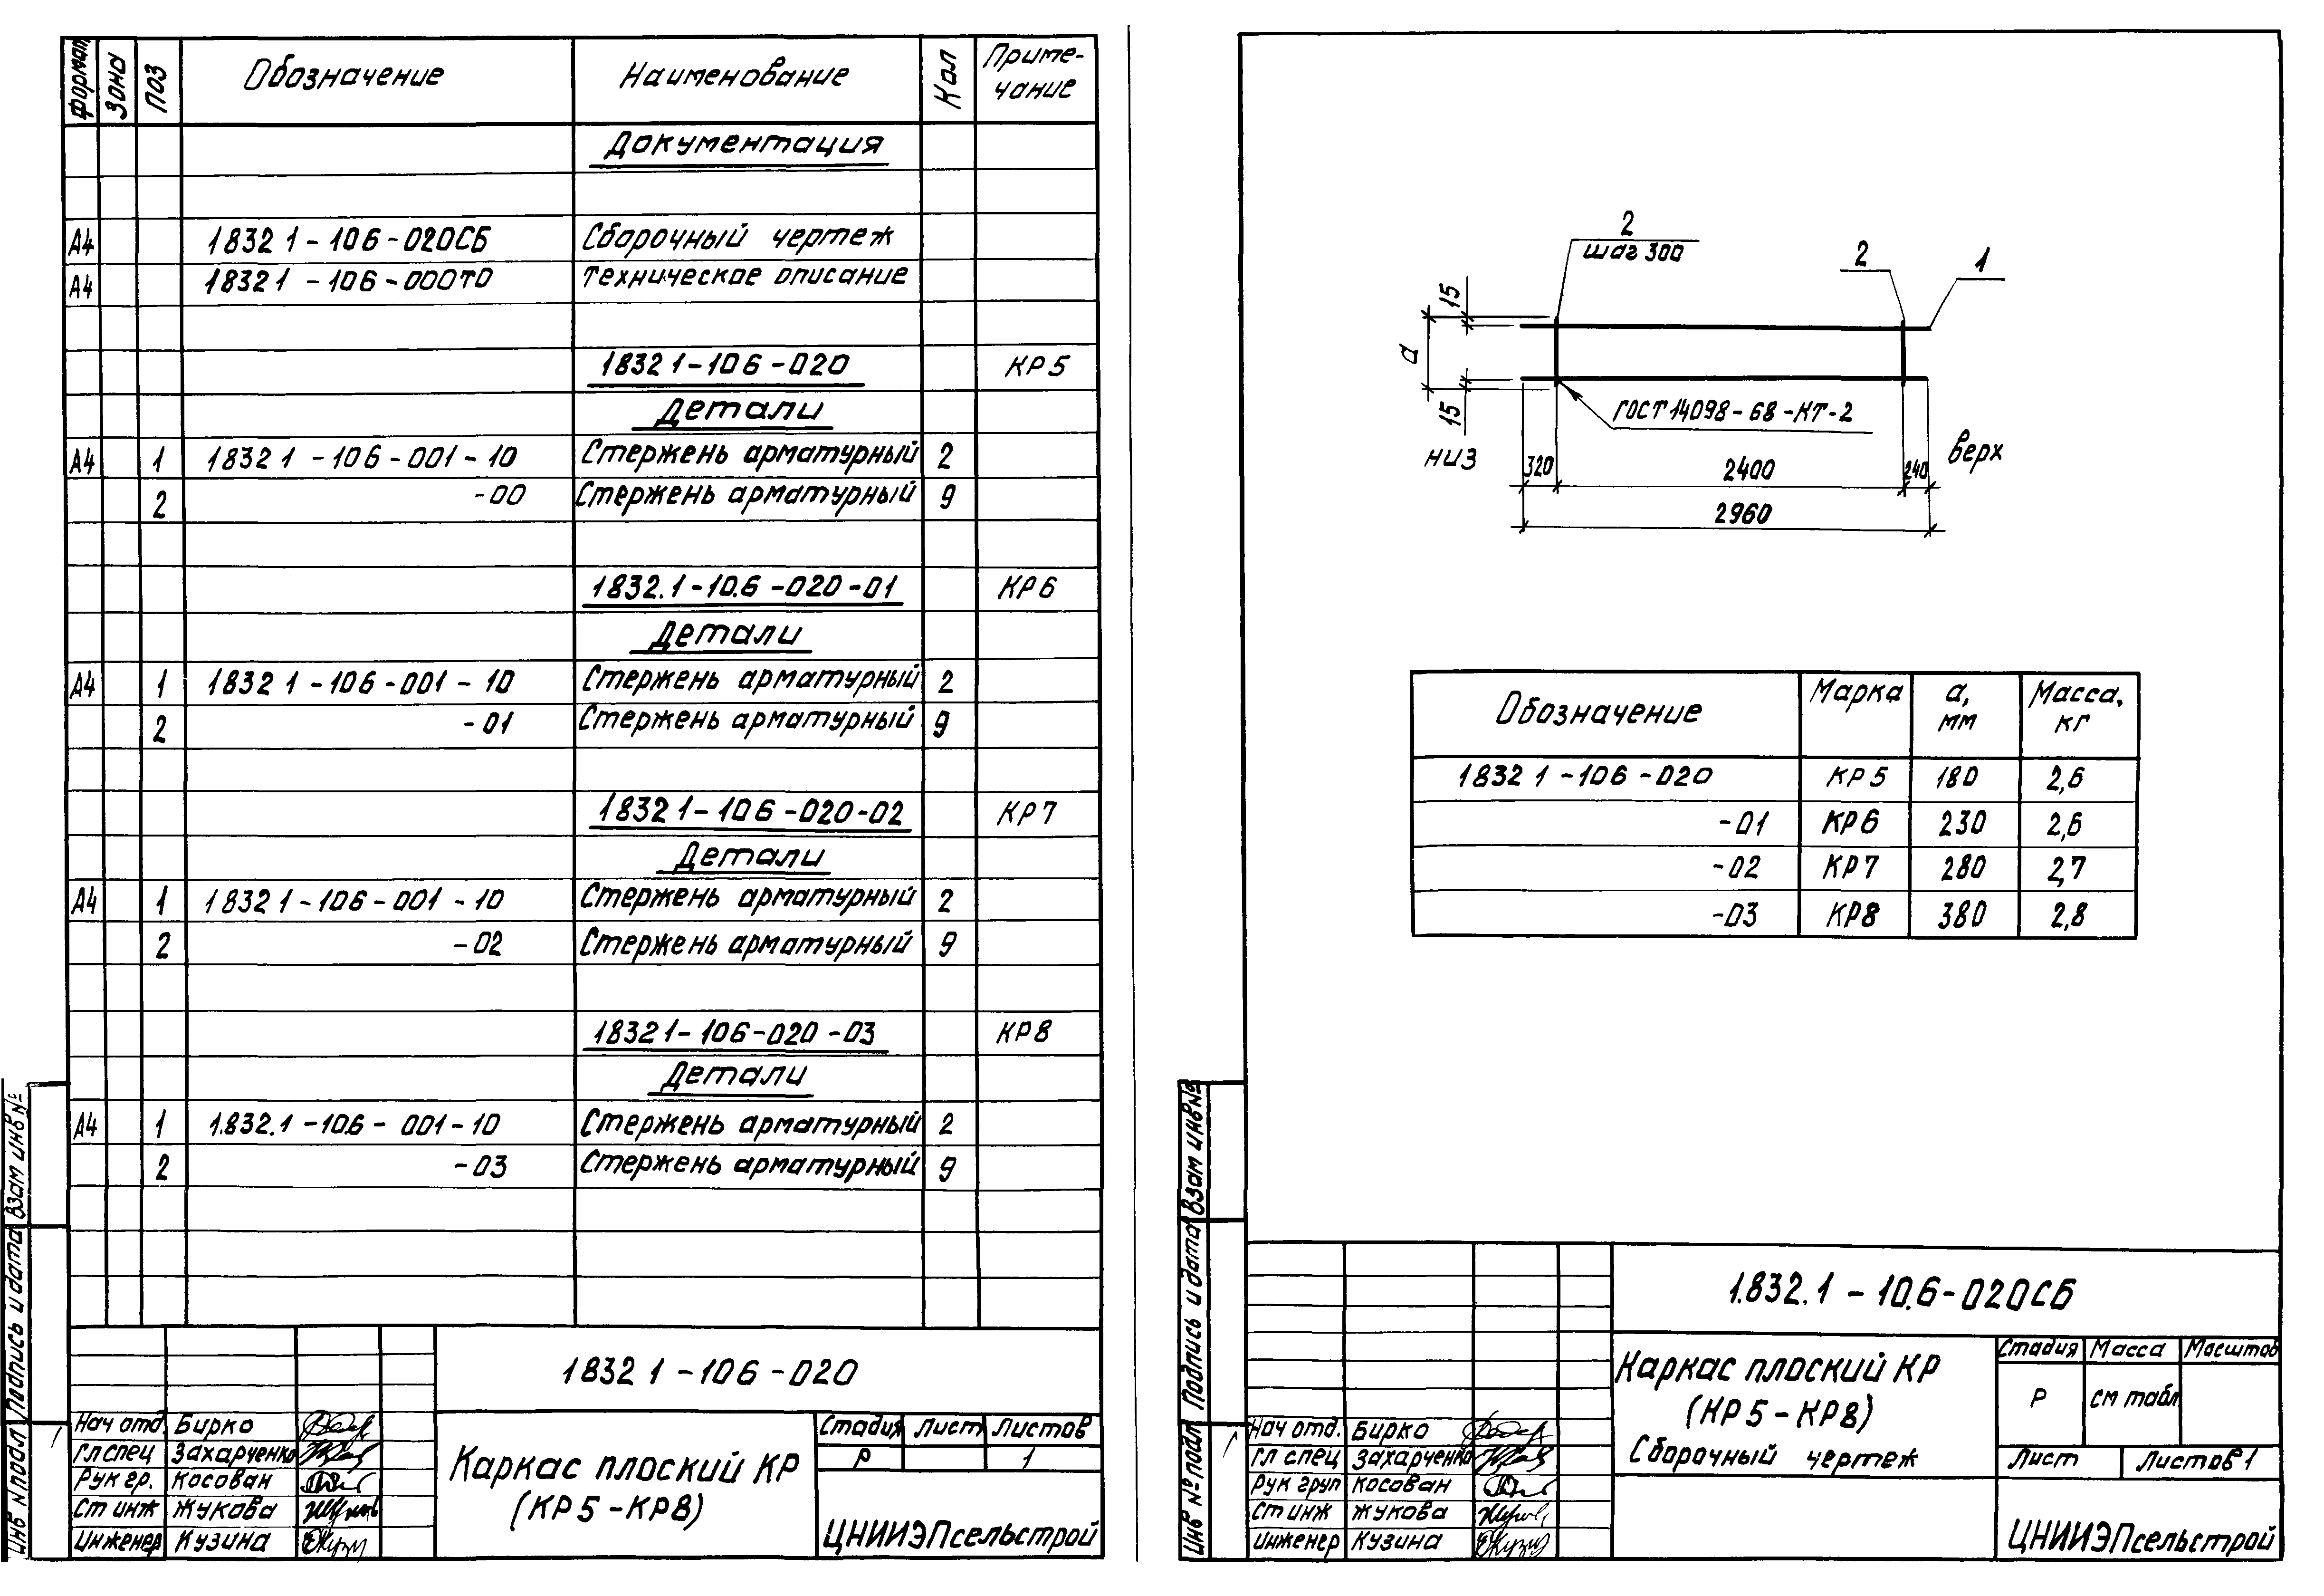 Формат Зона Поз Обозначение Наименование Кол Приме-
чание
Документация
А4 1832 1-106-020СБ Сборочный чертеж
А4 1832 1-106-000ТО Техническое описание
1832 1-106-020 КР5
Детали
А4 1 1832 1-106-001-10 Стержень арматурный 2
2 -00 Стержень арматурный 9
1832.1-10.6-020-01 КР6
Детали
А4 1 1832 1-106-001-10 Стержень арматурный 2
2 -01 Стержень арматурный 9
1832 1-106-020-02 КР7
Детали
А4 1 1832 1-106-001-10 Стержень арматурный 2
2 -02 Стержень арматурный 9
1832 1-106-020-03 КР8
Детали
А4 1 1.832.1-10.6-001-10 Стержень арматурный 2
2 -03 Стержень арматурный 9
Взам инв №
Подпись и дата
Инв № подл
1832 1-106-020
Нач отд. Бирко
Гл спец Захарченко
Рук гр. Косован
Ст инж Жукова
Инженер Кузина
Каркас плоский КР
(КР5-КР8)
Стадия Лист Листов
Р 1
ЦНИИЭПсельстрой
2
шаг 300
2
1
15
а
15
ГОСТ 14098-68-КТ-2
низ
верх
320 2400 240
2960
Обозначение Марка а,
мм Масса,
кг
1832 1-106-020 КР5 180 2,6
-01 КР6 230 2,6
-02 КР7 280 2,7
-03 КР8 380 2,8
Взам инв №
Подпись и дата
Инв № подл
1.832.1-10.6-020СБ
Нач отд. Бирко
Гл спец Захарченко
Рук груп Косован
Ст инж Жукова
Инженер Кузина
Каркас плоский КР
(КР5-КР8)
Сборочный чертеж
Стадия Масса Масштаб
Р см табл
Лист Листов 1
ЦНИИЭПсельстрой